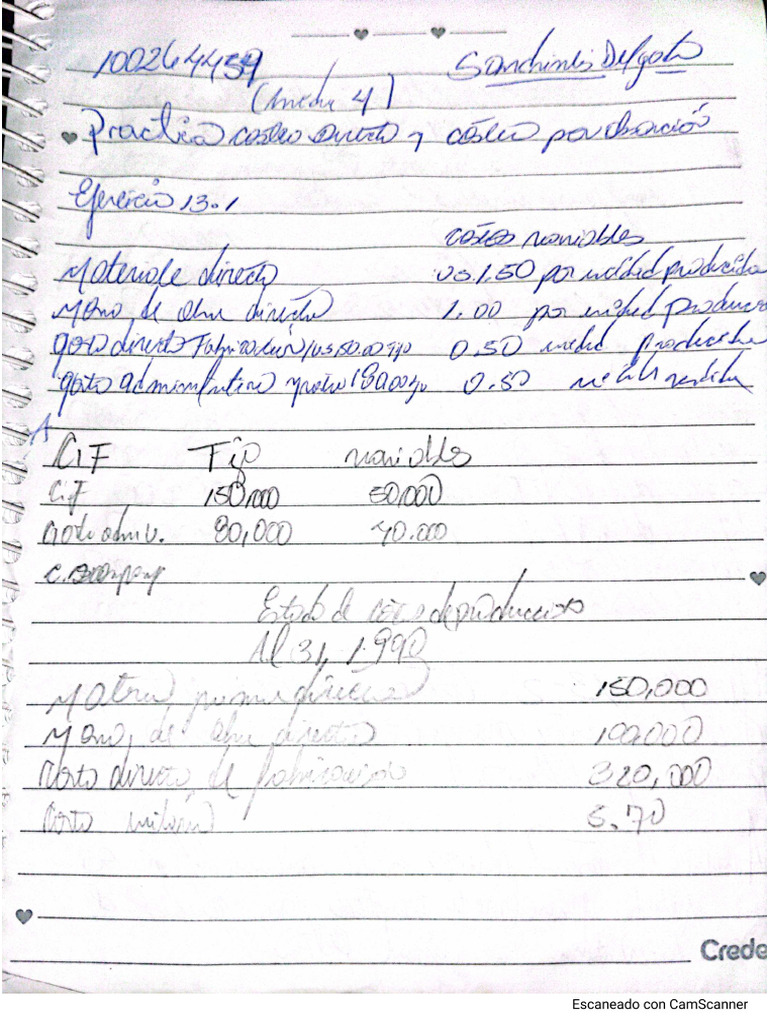 100264459 Sanchinelis Delgado
(Unidad 4)
Practica costeo directo y costeo por absorción
Ejercicio 13.1
costos variables
Materiale directo US.1.50 por unidad producida
Mano de obra directa 1.00 por unidad producida
gasto directo Fabricación 0.50 unidad producida
gasto administrativo 0.50 vendida
A
CIF Fijo variables
CIF 150.000 50.000
80,000 40.000
Estado de costo de producción
Al 31, 1.990
Materia prima directa 150,000
Mano de obra directa 100.000
Costo directo de fabricación 320,000
Costo unitario 5.70
Crede
Escaneado con CamScanner